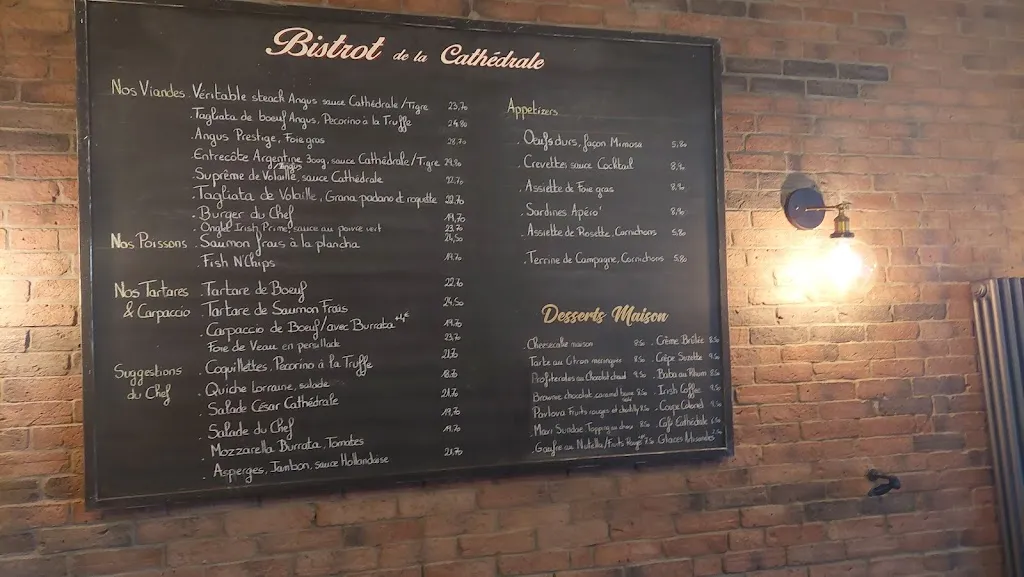 Bistrot de la Cathédrale
Nos Viandes . Véritable steack Angus sauce Cathédrale/Tigre 23,70
. Tagliata de boeuf Angus, Pecorino à la Truffe 24,80
. Angus Prestige, Foie gras 28,70
. Entrecôte Argentine 300g, sauce Cathédrale/Tigre 29,80
d'Angus
. Suprême de Volaille, sauce Cathédrale 22,70
. Tagliata de Volaille, Grana padano et roquette 22,70
. Burger du Chef 19,70
. Onglet Irish Prime, sauce au poivre vert 23,70
Nos Poissons . Saumon frais à la plancha 24,50
. Fish N'Chips 19,70
Nos Tartares & Carpaccio . Tartare de Boeuf 22,70
. Tartare de Saumon Frais 24,50
. Carpaccio de Boeuf/avec Burrata +4€ 19,70
. Foie de Veau en persillade 23,70
Suggestions du Chef . Coquillettes, Pecorino à la Truffe 21,70
. Quiche Lorraine, salade 18,70
. Salade César Cathédrale 21,70
. Salade du Chef 19,70
. Mozzarella Burrata, Tomates 19,70
. Asperges, Jambon, sauce Hollandaise 21,70
Appetizers
. Oeufs durs, façon Mimosa 5,80
. Crevettes sauce Cocktail 8,90
. Assiette de Foie gras 8,90
. Sardines Apéro' 8,90
. Assiette de Rosette, Cornichons 5,80
. Terrine de Campagne, Cornichons 5,80
Desserts Maison
Cheesecake maison 8,50 . Crème Brûlée 8,50
Tarte au Citron meringuée 8,50 . Crêpe Suzette 9,50
Profiteroles au Chocolat chaud 9,50 . Baba au Rhum
Brownie chocolat, caramel 8,50 . Irish Coffee 9,50
Pavlova Fruits rouges et chantilly 8,50 . Coupe Colonel 9,50
Maxi Sundae Topping au choix 8,50 . Café Cathédrale
Gaufre au Nutella/Fruits Rouges 7,50 . Glaces